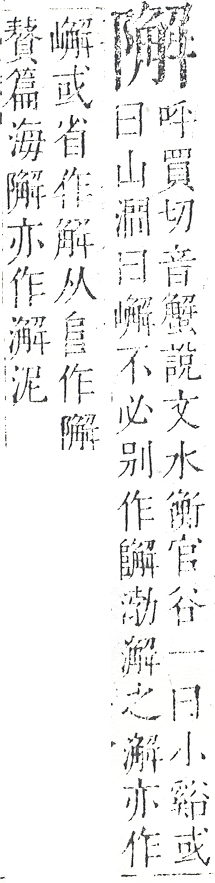 𨼬
呼買切音蟹說文水衡官谷一曰小谿或
曰山澗曰嶰不必别作渤澥之澥亦作
嶰或省作解从𨸏作𨼬
贅篇海𨼬亦作澥泥